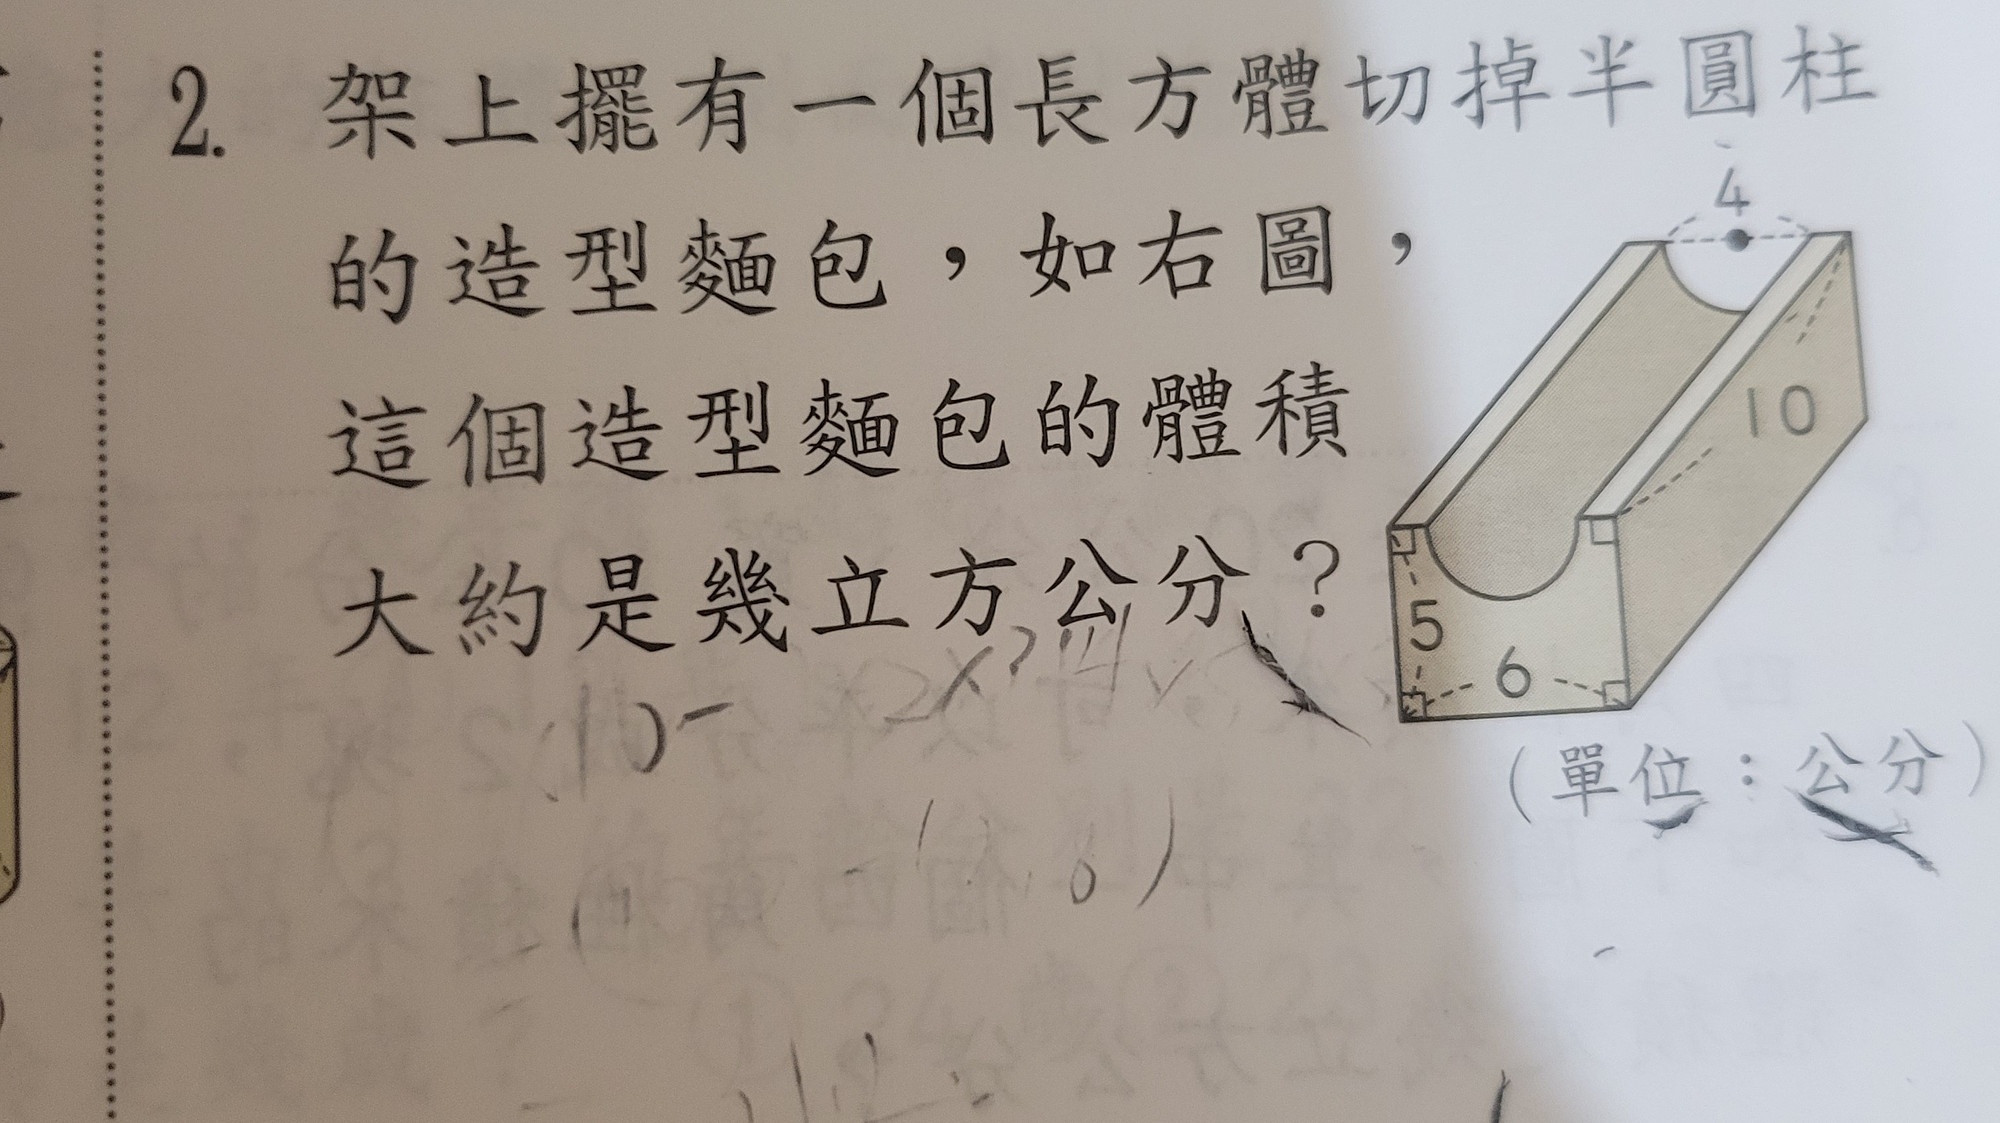 2. 架上擺有一個長方體切掉半圓柱
的造型麵包，如右圖，
這個造型麵包的體積
大約是幾立方公分？
4
10
5
6
（單位：公分）